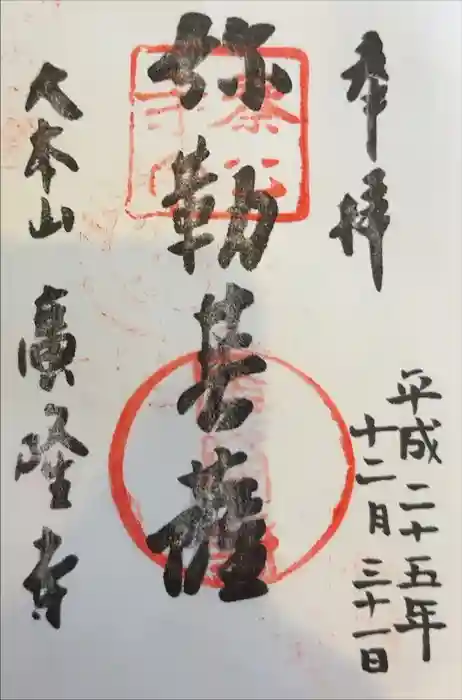 奉拝
平成二十五年
十二月三十一日
弥勒菩薩
大本山
廣隆寺